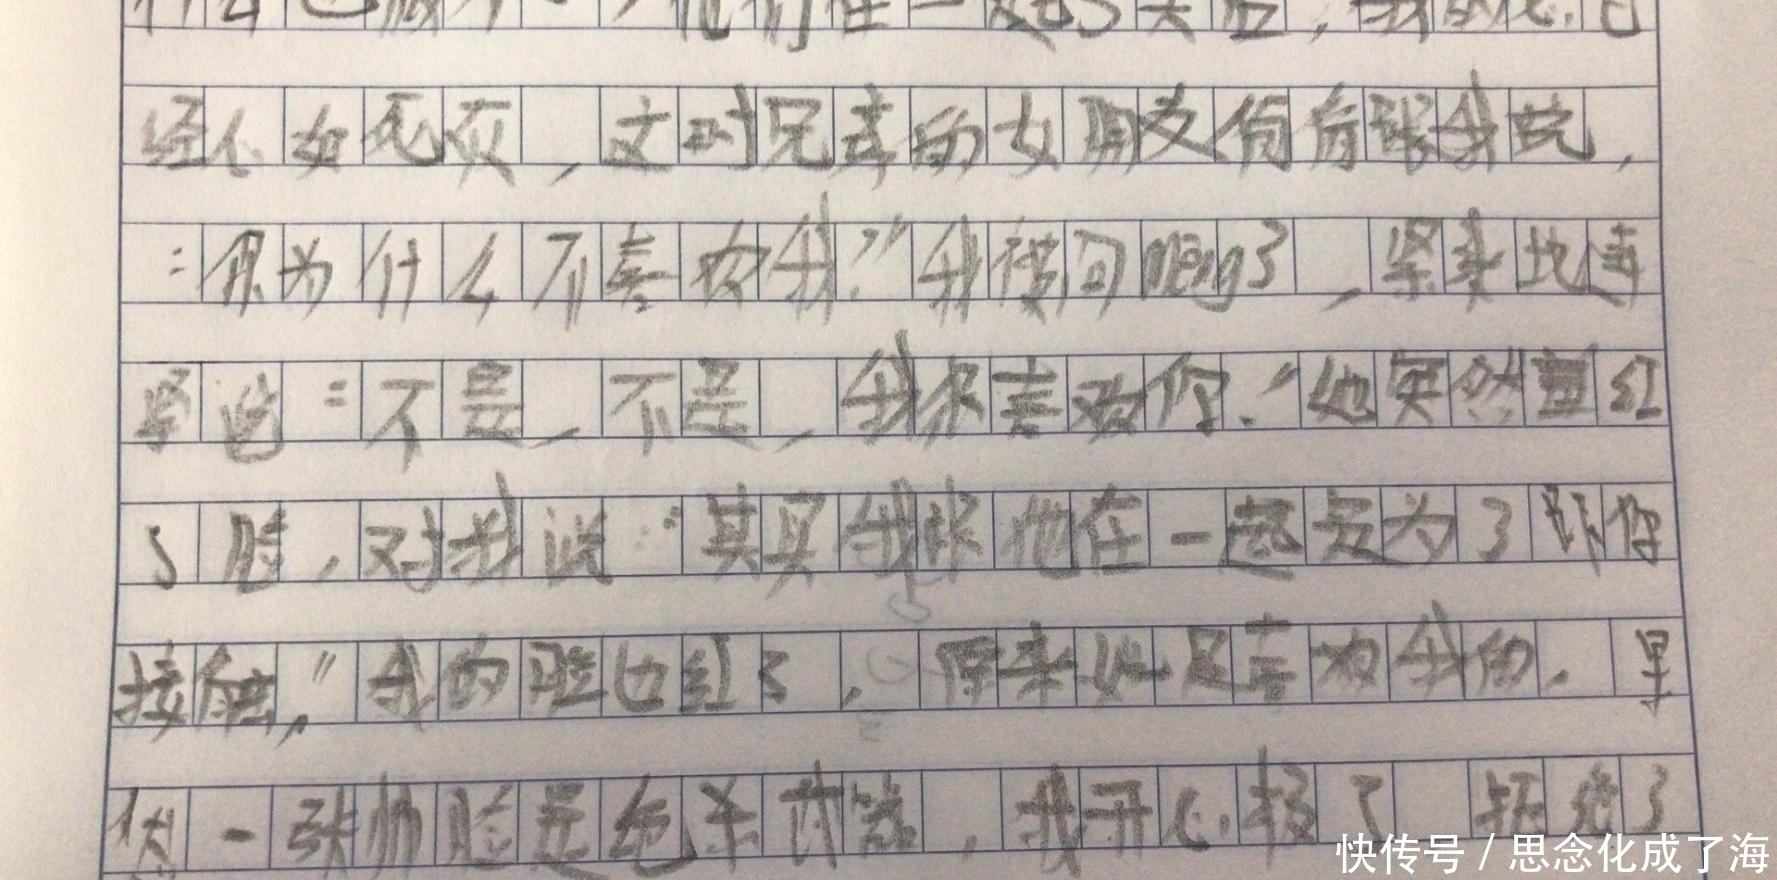 他们在一起了之后，我的心已
经心如死灰，这时兄弟的女朋友偷偷跟我说，
：你为什么不喜欢我？”我被问懵了，坚来地连
坚说：不是，不是，我很喜欢你.“她突然羞红
了脸，对我说：“其实我跟他在一起是为了跟你
接触，”我的脸也红了，原来她是喜欢我的。单
一张帅脸是绝杀武器，我开心极了 拒绝了
快传号 / 思念化成了海